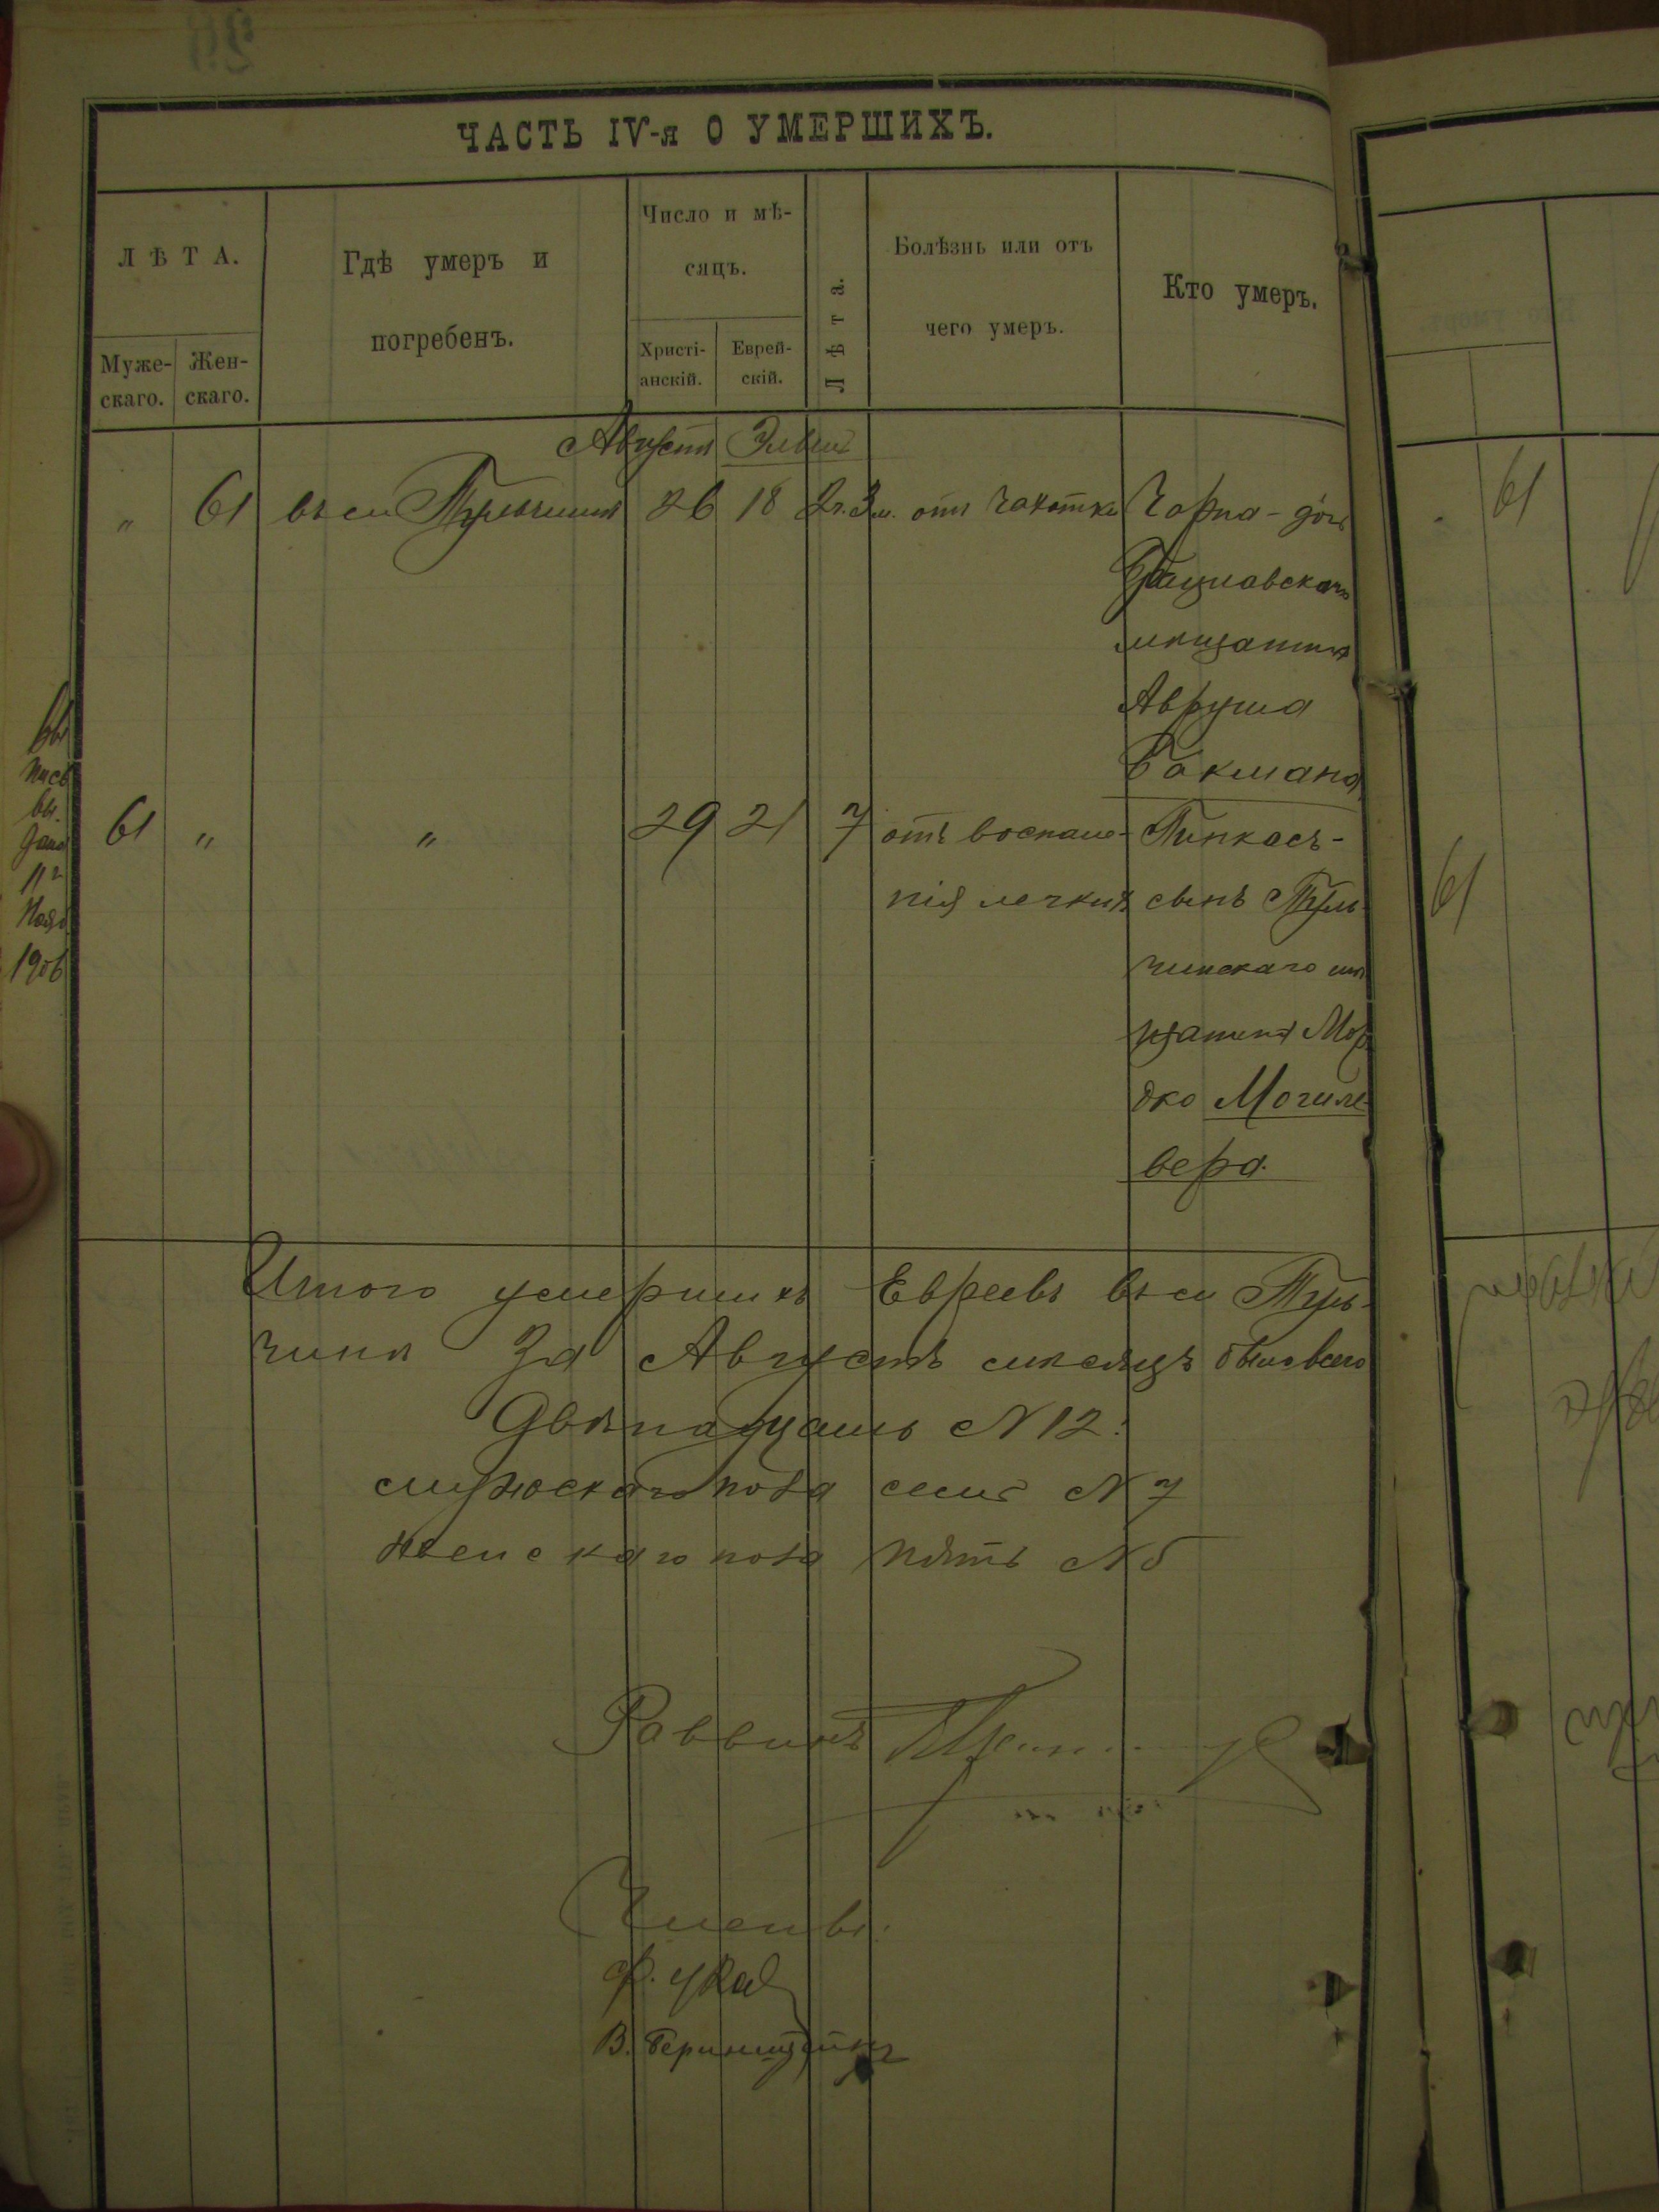 ЧАСТЬ IV-я О УМЕРШИХЪ.
ЛѢТА.
Муже-
скаго.
Жен-
скаго.
Гдѣ умеръ и
погребенъ.
Число и мѣ-
сяцъ.
Христі-
анскій.
Еврей-
скій.
Лѣта.
Болѣзнь или отъ
чего умеръ.
Кто умеръ.
Августъ Элыль
„ 61 въ м Тульчинѣ 26 18 2г. 3м. отъ чахотки Чорна - дочь
Брацлавскаго
мѣщанина
Аврума
Вакмана
61 „ „ 29 21 7 отъ воспале- Пинкасъ -
нія легкихъ сынъ Туль-
чинскаго мѣ
щанина Мор
дко Могиле-
вера.
Вы
пись
вы.
дана
11 г
Нояб
1906
Итого умершихъ Евреевъ въ м Туль-
чинѣ За Августъ мѣсяцъ было всего
Двѣнадцать N 12.
мужескаго пола семь N 7
женскаго пола пять N 5
Раввинъ
Члены:
В. Беринштейнъ
61
61